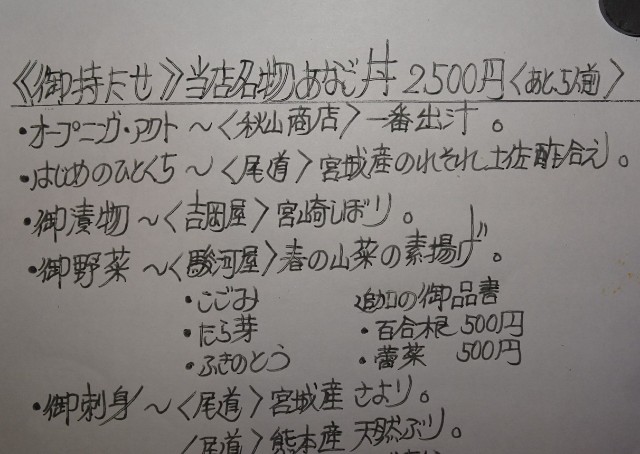 《御持たせ》当店名物あなご丼 2,500円〈あと、5人前〉
・オープニング・アクト〜〈秋山商店〉一番出汁。
・はじめのひとくち〜〈尾道〉宮城産のれそれ土佐酢合え。
・御漬物〜〈吉岡屋〉宮崎しぼり。
・御野菜〜〈駿河屋〉春の山菜の素揚げ。
・こごみ 追加の御品書
・たら芽 ・百合根 500円
・ふきのとう ・蕾菜 500円
・御刺身〜〈尾道〉宮城産 さより。
〈尾道〉熊本産 天然ぶり。